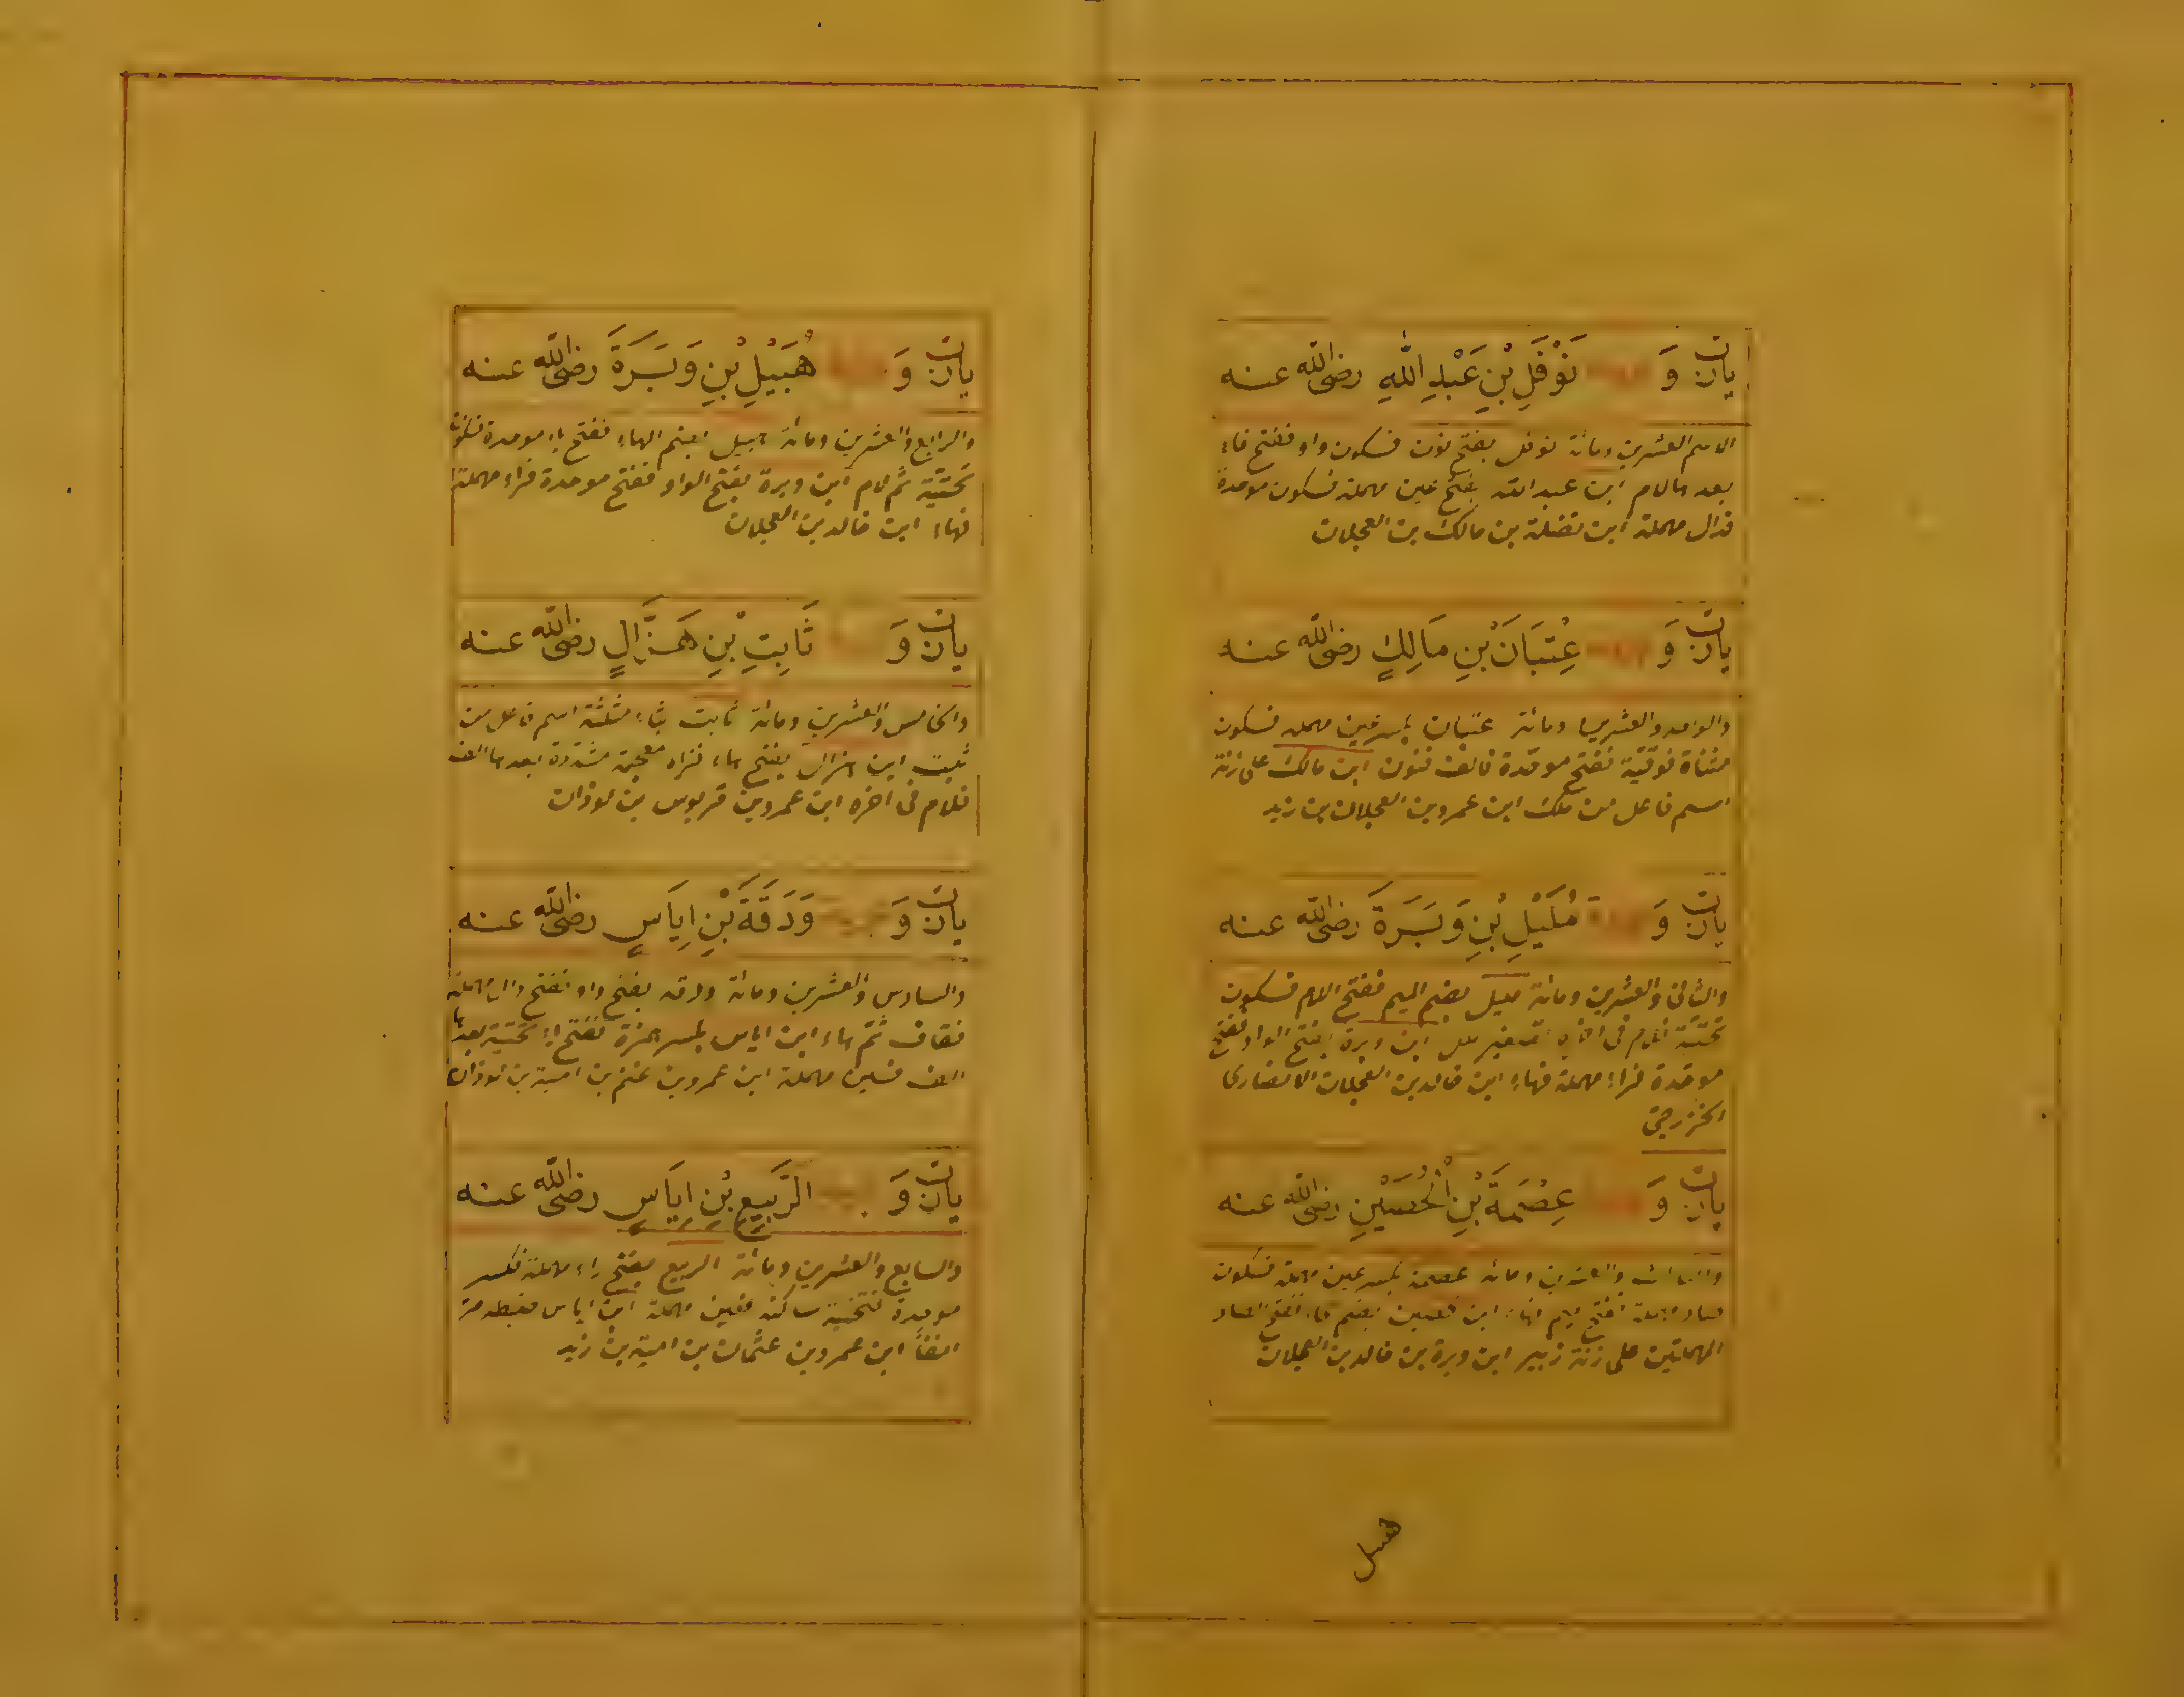 يان وَ نَوْفَلِ بْنِ عَبْدِ اللهِ رضى الله عنه
الاسم العشرين ومائة نوفل بفتح نون فسكون واو ففتح فاء
بعدها لام ابن عبد الله بفتح عين مهملة فسكون موحدة
فدال مهملة ابن نضلة بن مالك بن العجلان
يان وَ عِتْبَانَ بْنِ مَالِكٍ رضى الله عنه
والوحد والعشرين ومائة عتبان بكسر عين مهملة فسكون
مثناة فوقية ففتح موحدة فالف فنون ابن مالك على زنة
اسم فاعل من ملك ابن عمرو بن العجلان بن زيد
يان وَ مُلَيْلِ بْنِ وَبَرَةَ رضى الله عنه
والثانى والعشرين ومائة مليل بضم الميم ففتح اللام فسكون
تحتية فلام فى اخره تصغير ملل ابن وبرة بفتح الواو ففتح
موحدة فراء مهملة فهاء ابن خالد بن العجلان الانصارى
الخزرجى
يان وَ عِصْمَةَ بْنِ الْحُصَيْنِ رضى الله عنه
والثالث والعشرين ومائة عصمة بكسر عين مهملة فسكون
صاد مهملة ففتح ميم فهاء ابن حصين بضم حاء ففتح الصاد
المهملتين على زنة زبير ابن وبرة بن خالد بن العجلان
هبيل
يان وَ هُبَيْلِ بْنِ وَبَرَةَ رضى الله عنه
والرابع والعشرين ومائة هبيل بضم الهاء ففتح باء موحدة فسكون
تحتية ثم لام ابن وبرة بفتح الواو ففتح موحدة فراء مهملة
فهاء ابن خالد بن العجلان
يان وَ ثَابِتِ بْنِ هَزَّالٍ رضى الله عنه
والخامس والعشرين ومائة ثابت بثاء مثلثة اسم فاعل من
ثبت ابن هزال بفتح هاء فزاء معجمة مشددة بعدها الف
فلام فى اخره ابن عمرو بن قربوس بن لوذان
يان وَ وَدَقَةَ بْنِ اِيَاسٍ رضى الله عنه
والسادس والعشرين ومائة ودقه بفتح واو ففتح دال مهملة
فقاف ثم هاء ابن اياس بكسر همزة ففتح ياء تحتية بعدها
الف فسين مهملة ابن عمرو بن غنم بن امية بن لوذان
يان وَ الرَّبِيعِ بْنِ اِيَاسٍ رضى الله عنه
والسابع والعشرين ومائة الربيع بفتح راء مهملة فكسر
موحدة فتحتية ساكنة فعين مهملة ابن اياس بضبطه مر
انفاً ابن عمرو بن عثمان بن امية بن زيد